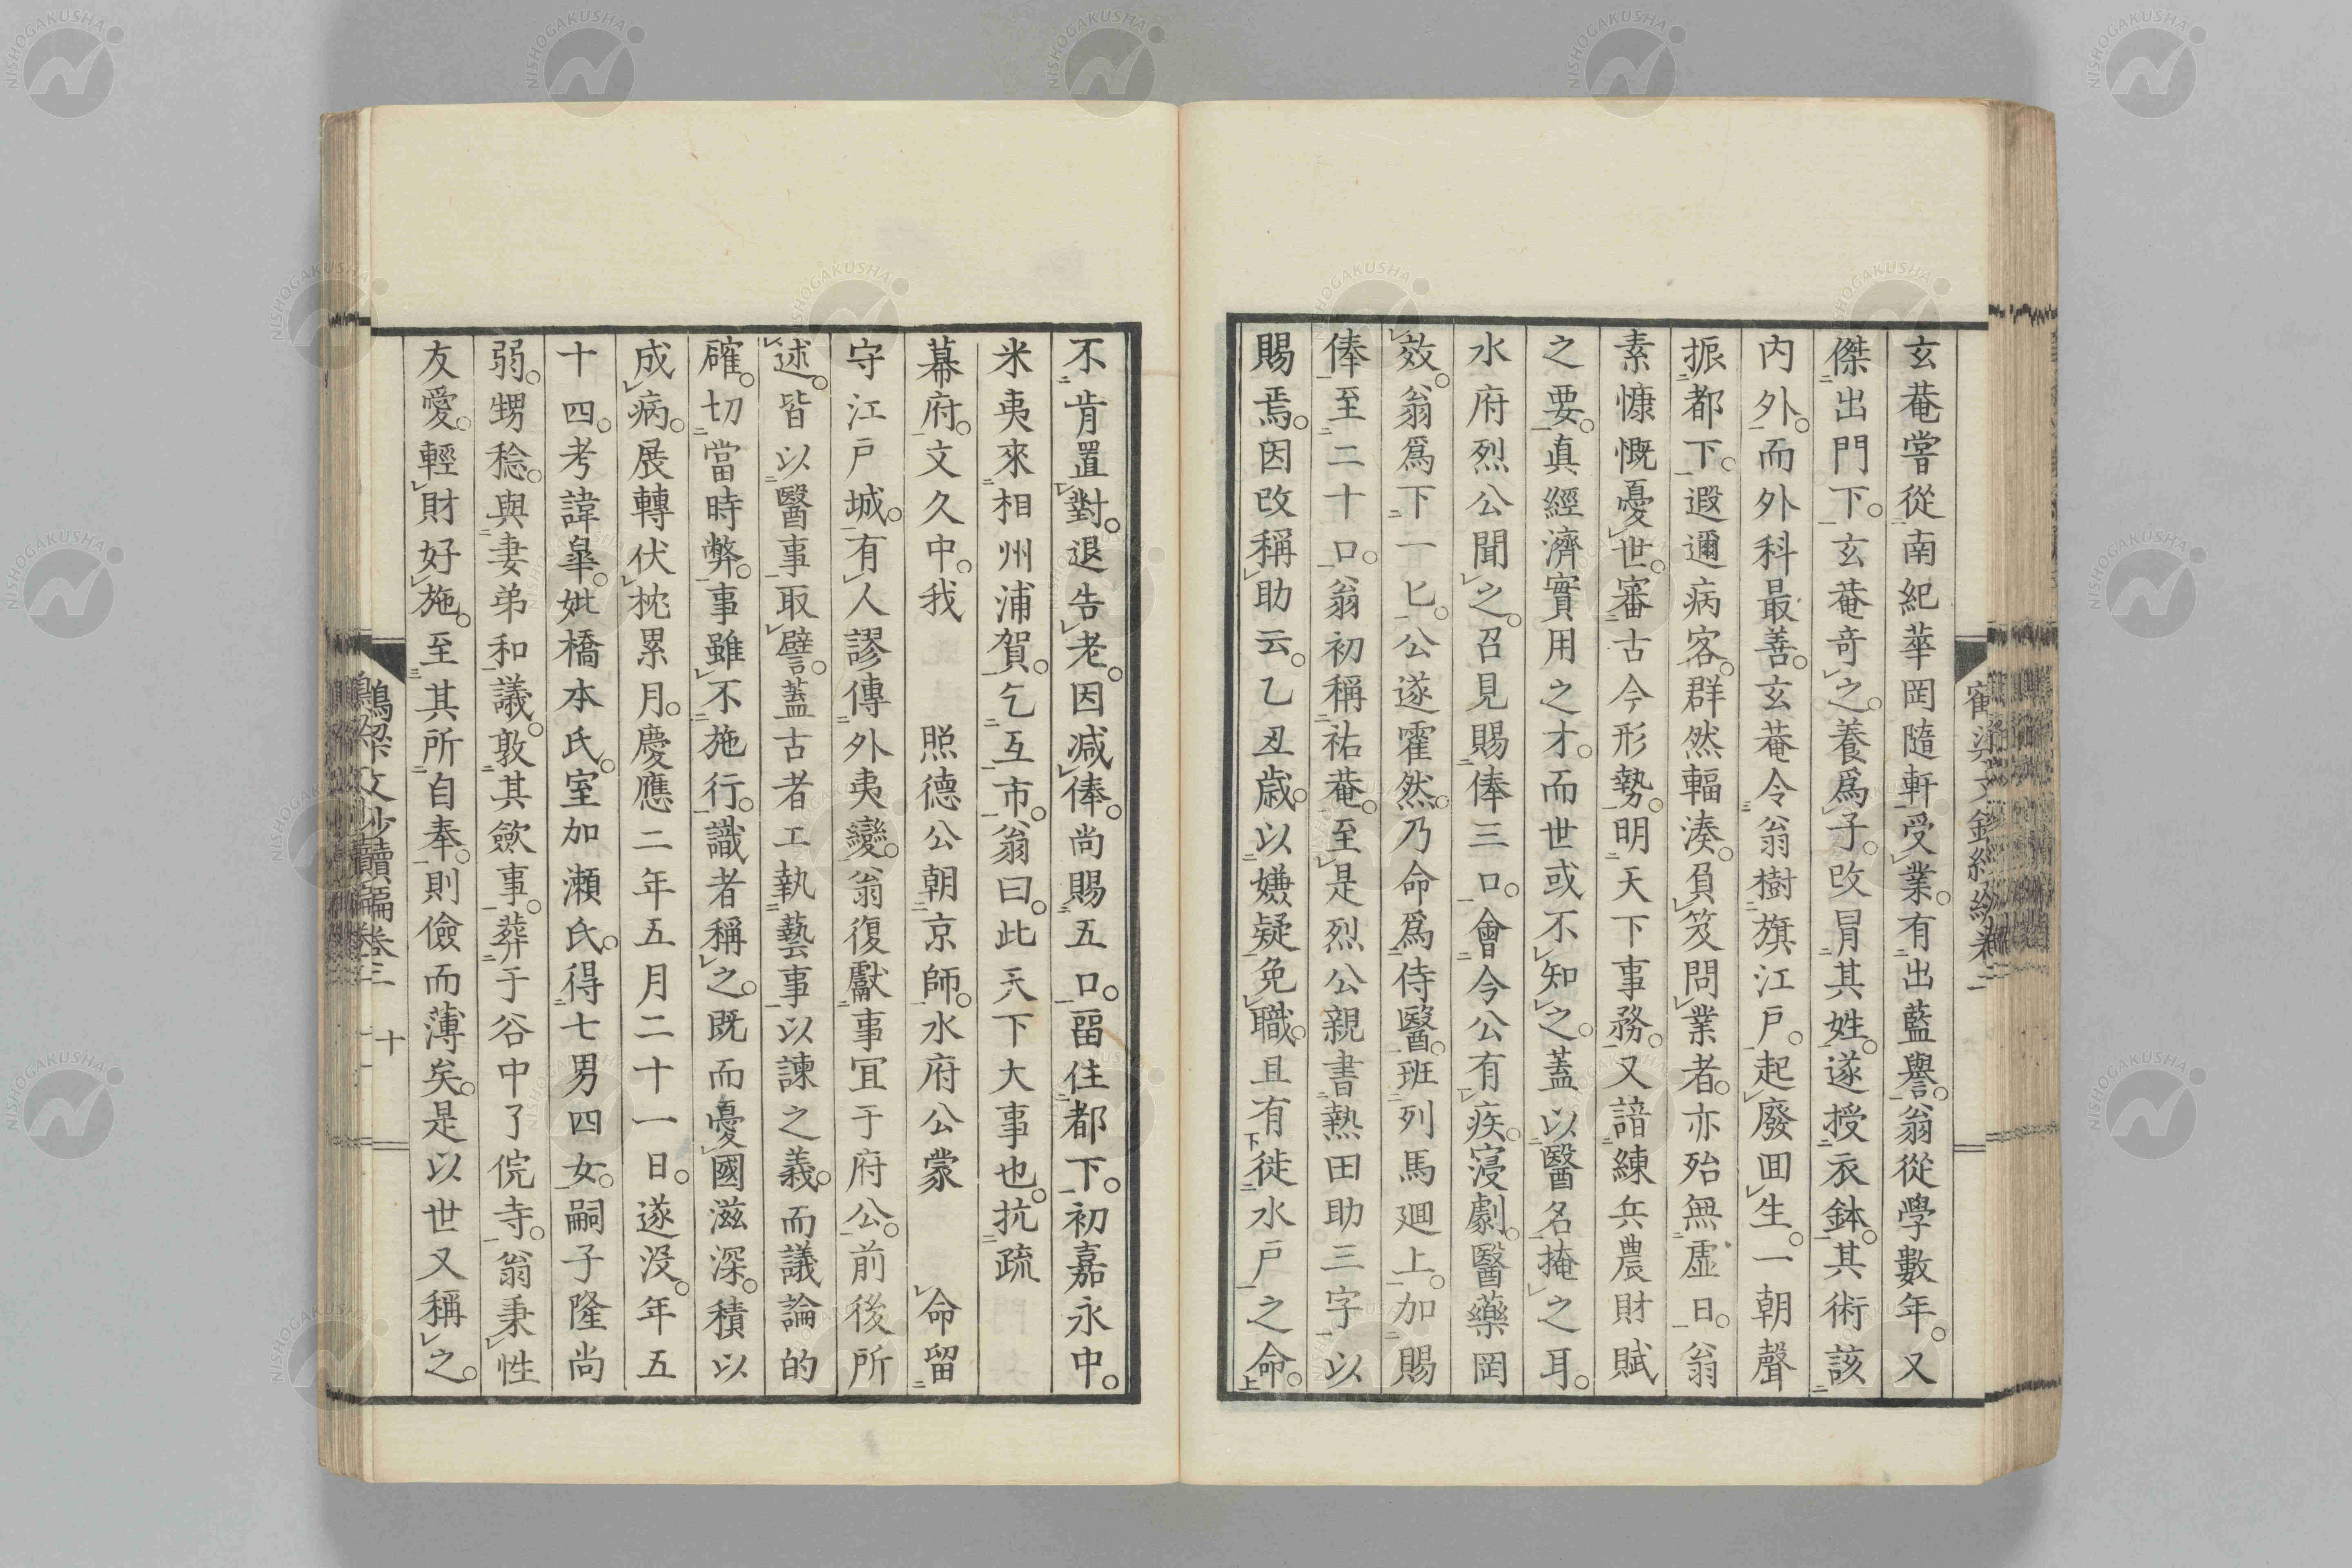 玄菴嘗從南紀華岡隨軒受業。有出藍譽。翁從學數年。又
傑出門下。玄菴奇之。養爲子。改冐其姓。遂授衣鉢。其術該
内外。而外科最善。玄菴令翁樹旗江戸。起廢回生。一朝聲
振都下。遐邇病客。群然輻湊。負笈問業者。亦殆無虚日。翁
素慷慨憂世。審古今形勢。明天下事務。又諳練兵農財賦
之要。真經濟實用之才。而世或不知之。蓋以醫名掩之耳。
水府烈公聞之。召見賜俸三口。會今公有疾。寖劇。醫藥罔
效。翁爲下一匕。公遂霍然。乃命爲侍醫。班列馬廻上。加賜
俸至二十口。翁初稱祐菴。至是烈公親書熱田助三字。以
賜焉。因改稱助云。乙丑歳。以嫌疑免職。且有徙水戸之命。
不肯置對。退告老。因减俸。尚賜五口。畱住都下。初嘉永中。
米夷來相州浦賀。乞互市。翁曰。此天下大事也。抗疏
幕府。文久中。我 照德公朝京師。水府公蒙 命留
守江戸城。有人謬傳外夷變。翁復獻事宜于府公。前後所
述。皆以醫事取譬。蓋古者工執藝事以諫之義。而議論的
確。切當時弊。事雖不施行。識者稱之。既而憂國滋深。積以
成病。展轉伏枕累月。慶應二年五月二十一日。遂没。年五
十四。考諱皐。妣橋本氏。室加瀬氏。得七男四女。嗣子隆尚
弱。甥稔。與妻弟和議。敦其歛事。葬于谷中了俒寺。翁秉性
友愛。輕財好施。至其所自奉。則儉而薄矣。是以世又稱之。
鷯梁文抄續編卷三 十